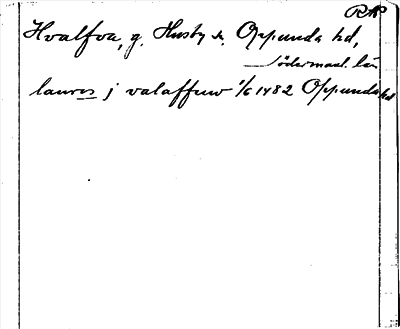 RAP
Hvalfva, g. Husby s. Oppunda hd,
Södermanl. län
laures j valaffuu 1/6 1482 Oppunda hd